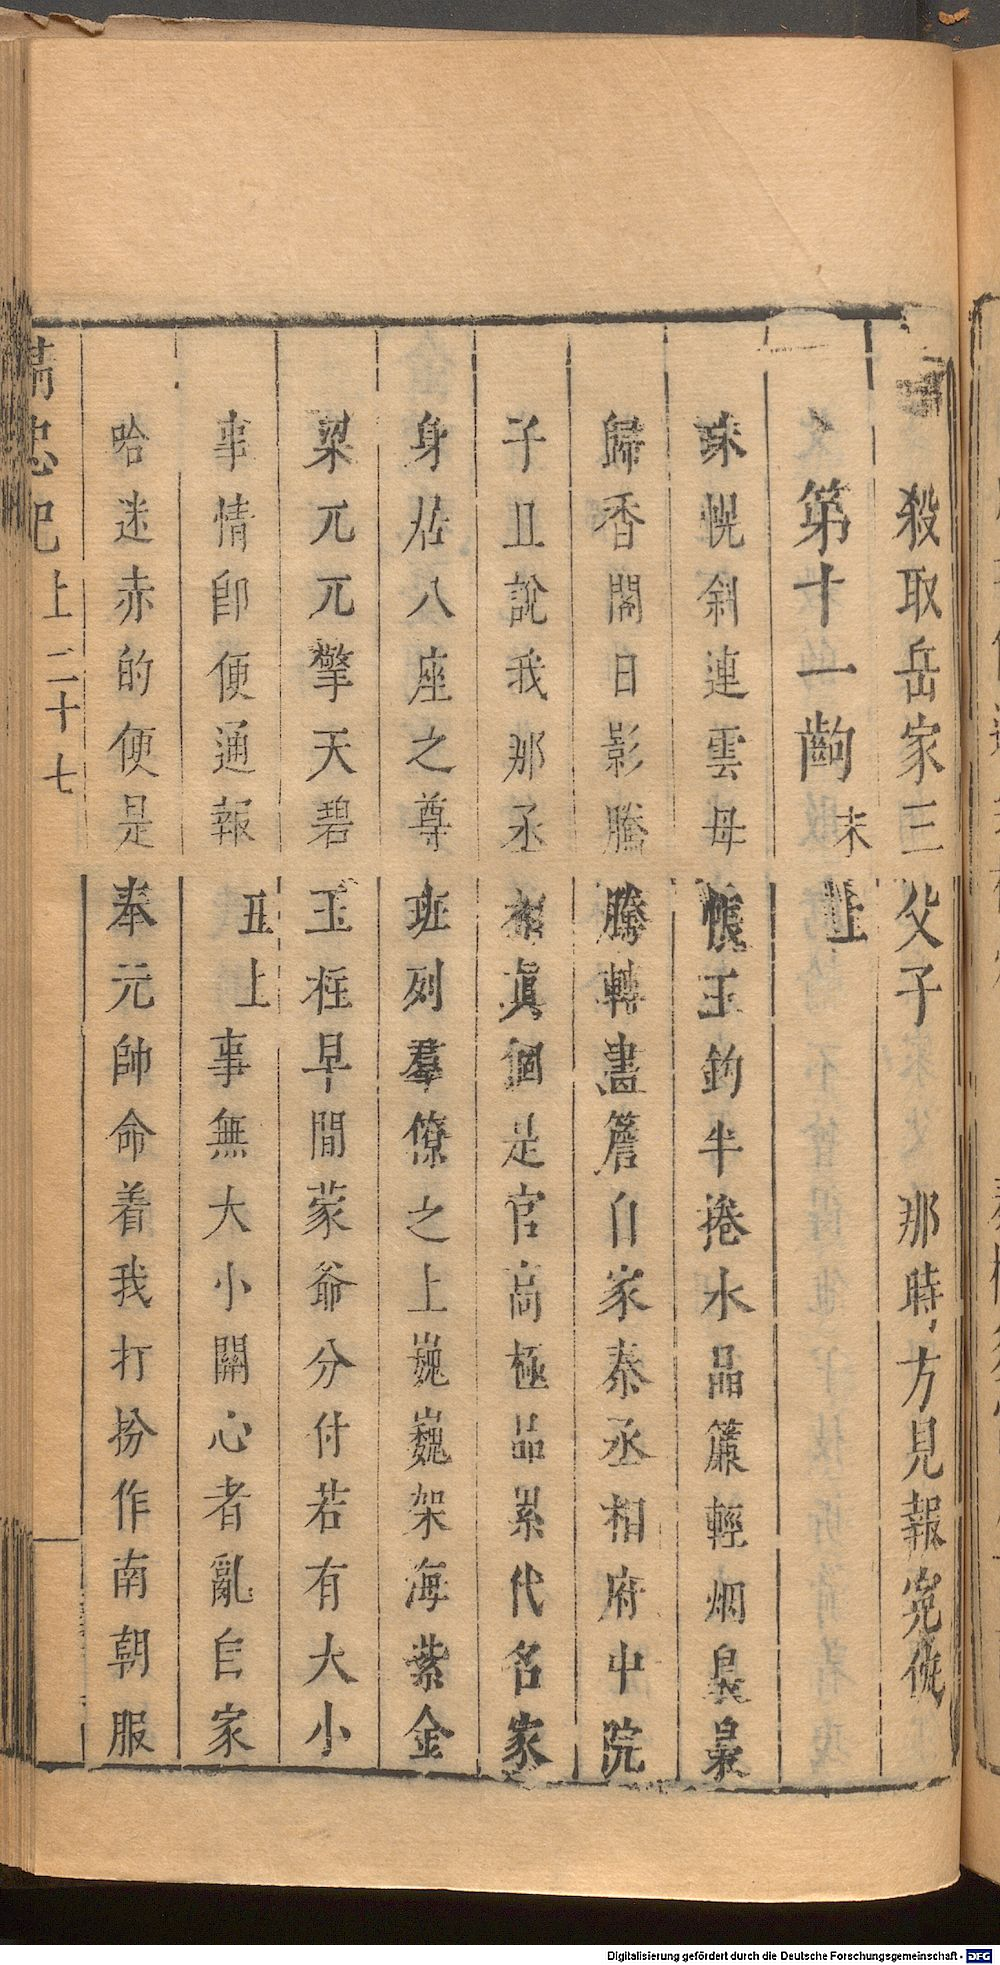 殺取岳家三父子　那時方見報寃仇
第十一齣末上
珠幌斜連雲母幃玉鈎半捲水晶簾輕烟裊裊
歸香閣日影騰騰轉畫簷自家秦丞相府中院
子且說我那丞相真個是官高極品累代名家
身居八座之尊班列羣僚之上巍巍架海紫金
梁兀兀擎天碧玉柱早間蒙爺分付若有大小
事情即便通報丑上事無大小關心者亂自家
哈迷赤的便是奉元帥命着我打扮作南朝服
精忠記　上二十七
Digitalisierung gefördert durch die Deutsche Forschungsgemeinschaft - DFG